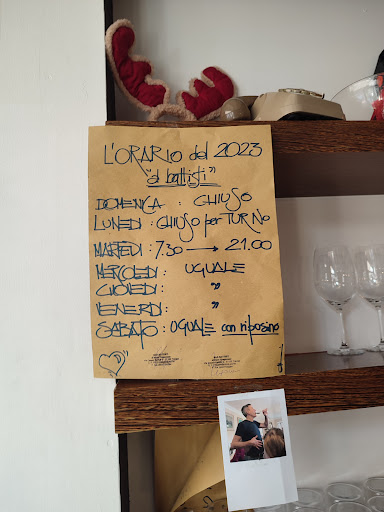 L'ORARIO del 2023
"ai battisti"
DOMENICA : CHIUSO
LUNEDI : CHIUSO per TURNO
MARTEDI : 7.30 → 21.00
MERCOLEDI : UGUALE
GIOVEDI : "
VENERDI : "
SABATO : UGUALE con riposino